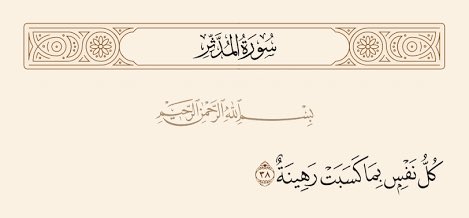 سُورَةُ المُدَّثِّرِ
بِسْمِ اللَّهِ الرَّحْمَٰنِ الرَّحِيمِ
كُلُّ نَفْسٍ بِمَا كَسَبَتْ رَهِينَةٌ ٣٨